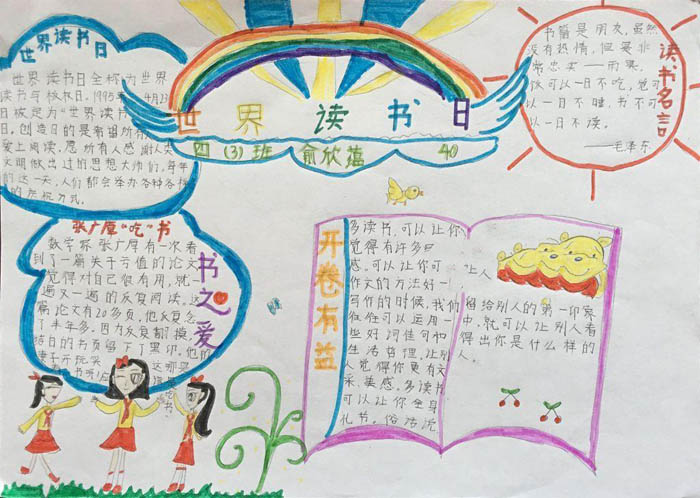 世界读书日
世界读书日全称为世界
读书与版权日,1995年 4月23
日被定为"世界读书
日,创造目的是希望所有
爱上阅读,愿所有人感谢人类
文明做出过的思想大师们,每年
的这一天,人们都会举办各种各样
的庆祝方式。
世界读书日
四(3)班 俞欣蕴 40
书籍是朋友,虽然
没有热情,但是非
常忠实——雨果
饭可以一日不吃,觉可
以一日不睡,书不可
以一日不读。
——毛泽东
读书名言
张广厚"吃"书
数学家张广厚有一次看
到了一篇关于亏值的论文
觉得对自己很有用,就一
遍又一遍的反复阅读。这
篇论文有20多页,他反复念
了半年多。因为反复翻摸,
洁白的书页留下了黑印,他的
妻子开玩笑
书之爱
开卷有益
多读书,可以让你
觉得有许多的
感,可以让你可
作文的方法好一
写作的时候,我们
往往可以运用一
些好词佳句和
生活哲理,让别
人觉得你更有文
采,美感。多读书
可以让你全身
礼节。俗话说
让人
留给别人的第一印象
中,就可以让别人看
得出你是什么样的
人。